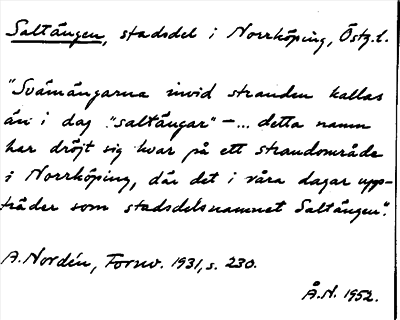 Saltängen, stadsdel i Norrköping, Östg.l.
"Svämängarna invid stranden kallas
än i dag "saltängar" – ... detta namn
har dröjt sig kvar på ett strandområde
i Norrköping, där det i våra dagar upp-
träder som stadsdelsnamnet Saltängen".
A. Nordén, Fornv. 1931, s. 230.
Å.N. 1952.